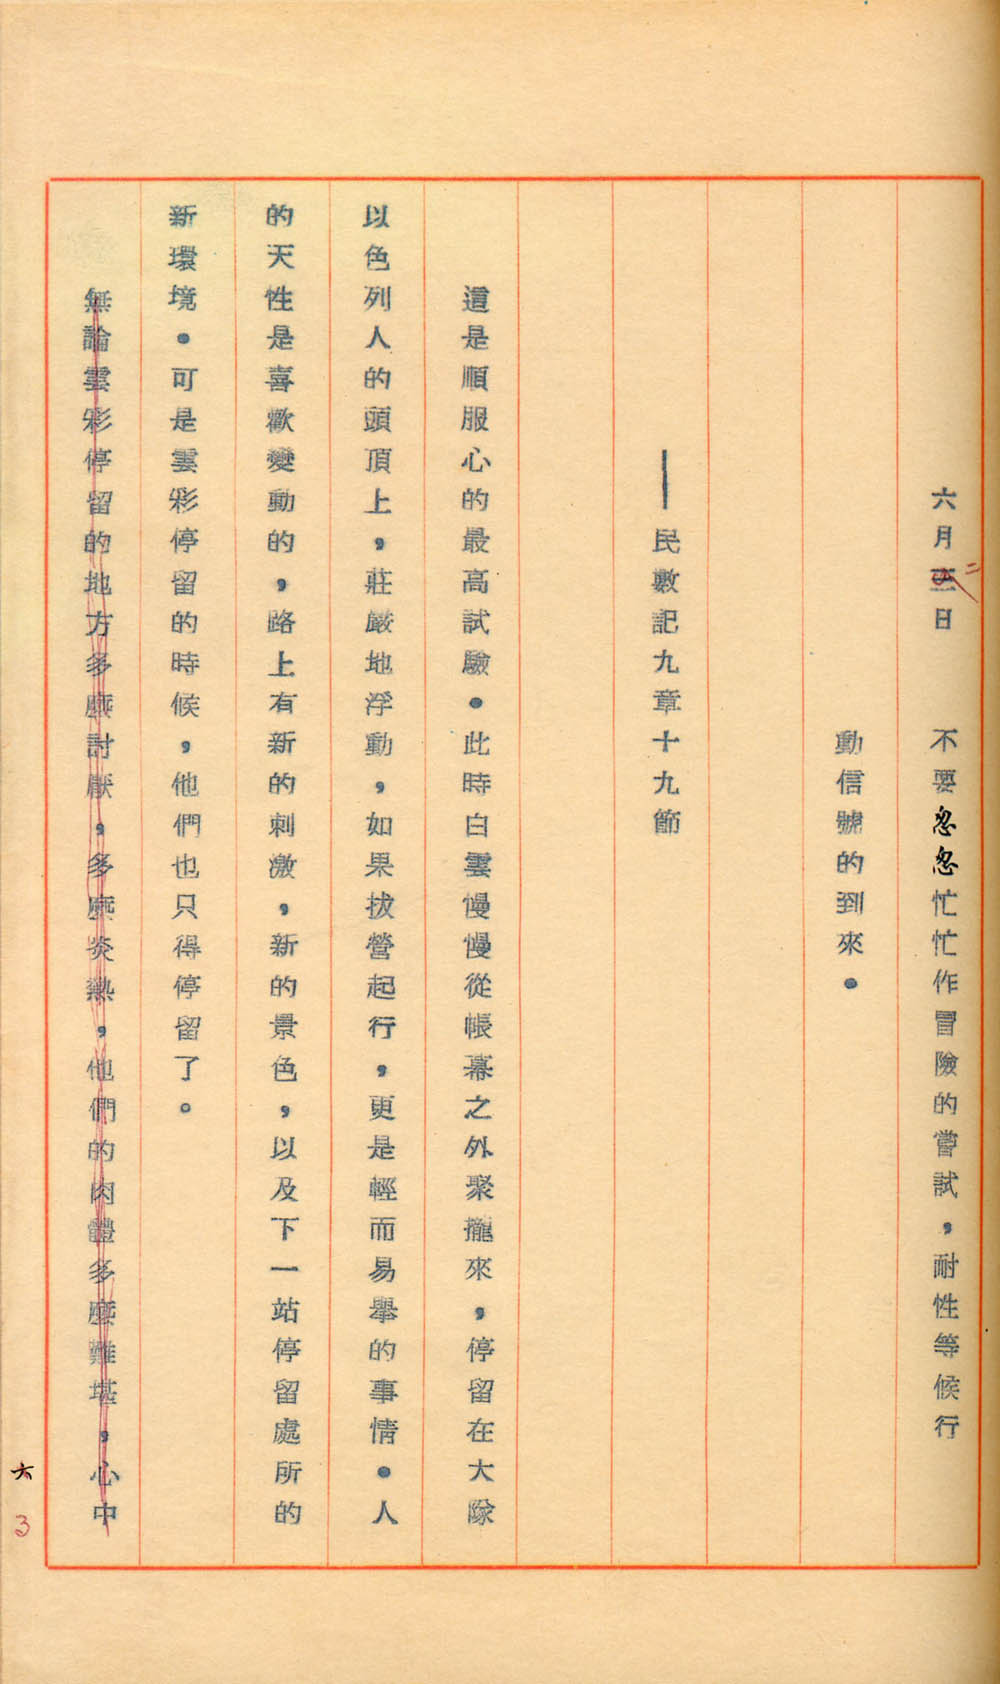 六月三日　不要忽忽忙忙作冒險的嘗試，耐性等候行
二
動信號的到來。
——民數記九章十九節
這是順服心的最高試驗。此時白雲慢慢從帳幕之外聚攏來，停留在大隊
以色列人的頭頂上，莊嚴地浮動，如果拔營起行，更是輕而易舉的事情。人
的天性是喜歡變動的，路上有新的刺激，新的景色，以及下一站停留處所的
新環境。可是雲彩停留的時候，他們也只得停留了。
無論雲彩停留的地方多麼討厭，多麼炎熱，他們的肉體多麼難堪，心中
六
3